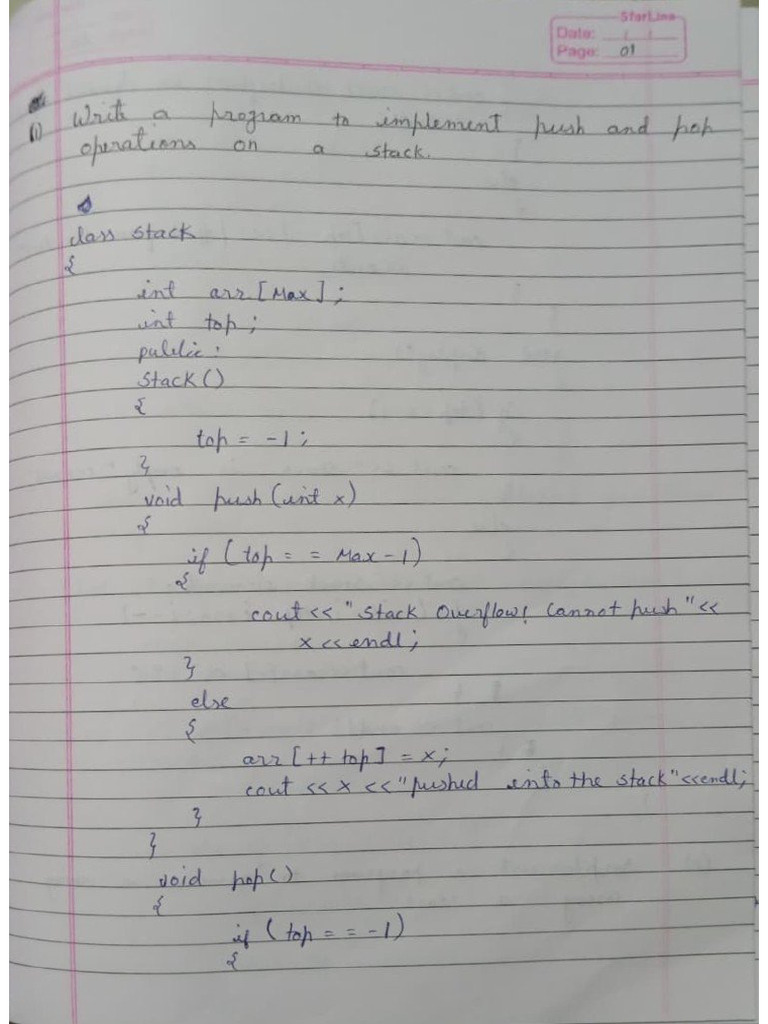 StarLine
Date:
Page: 01
(1) Write a program to implement push and pop
operations on a stack.
class stack
{
int arr [Max];
int top;
public:
stack()
{
top = -1;
}
void push (int x)
{
if (top = = Max-1)
{
cout << "Stack Overflow! Cannot push" <<
x << endl;
}
else
{
arr [++ top] = x;
cout << x << "pushed into the stack"<<endl;
}
}
void pop()
{
if (top = = -1)
{